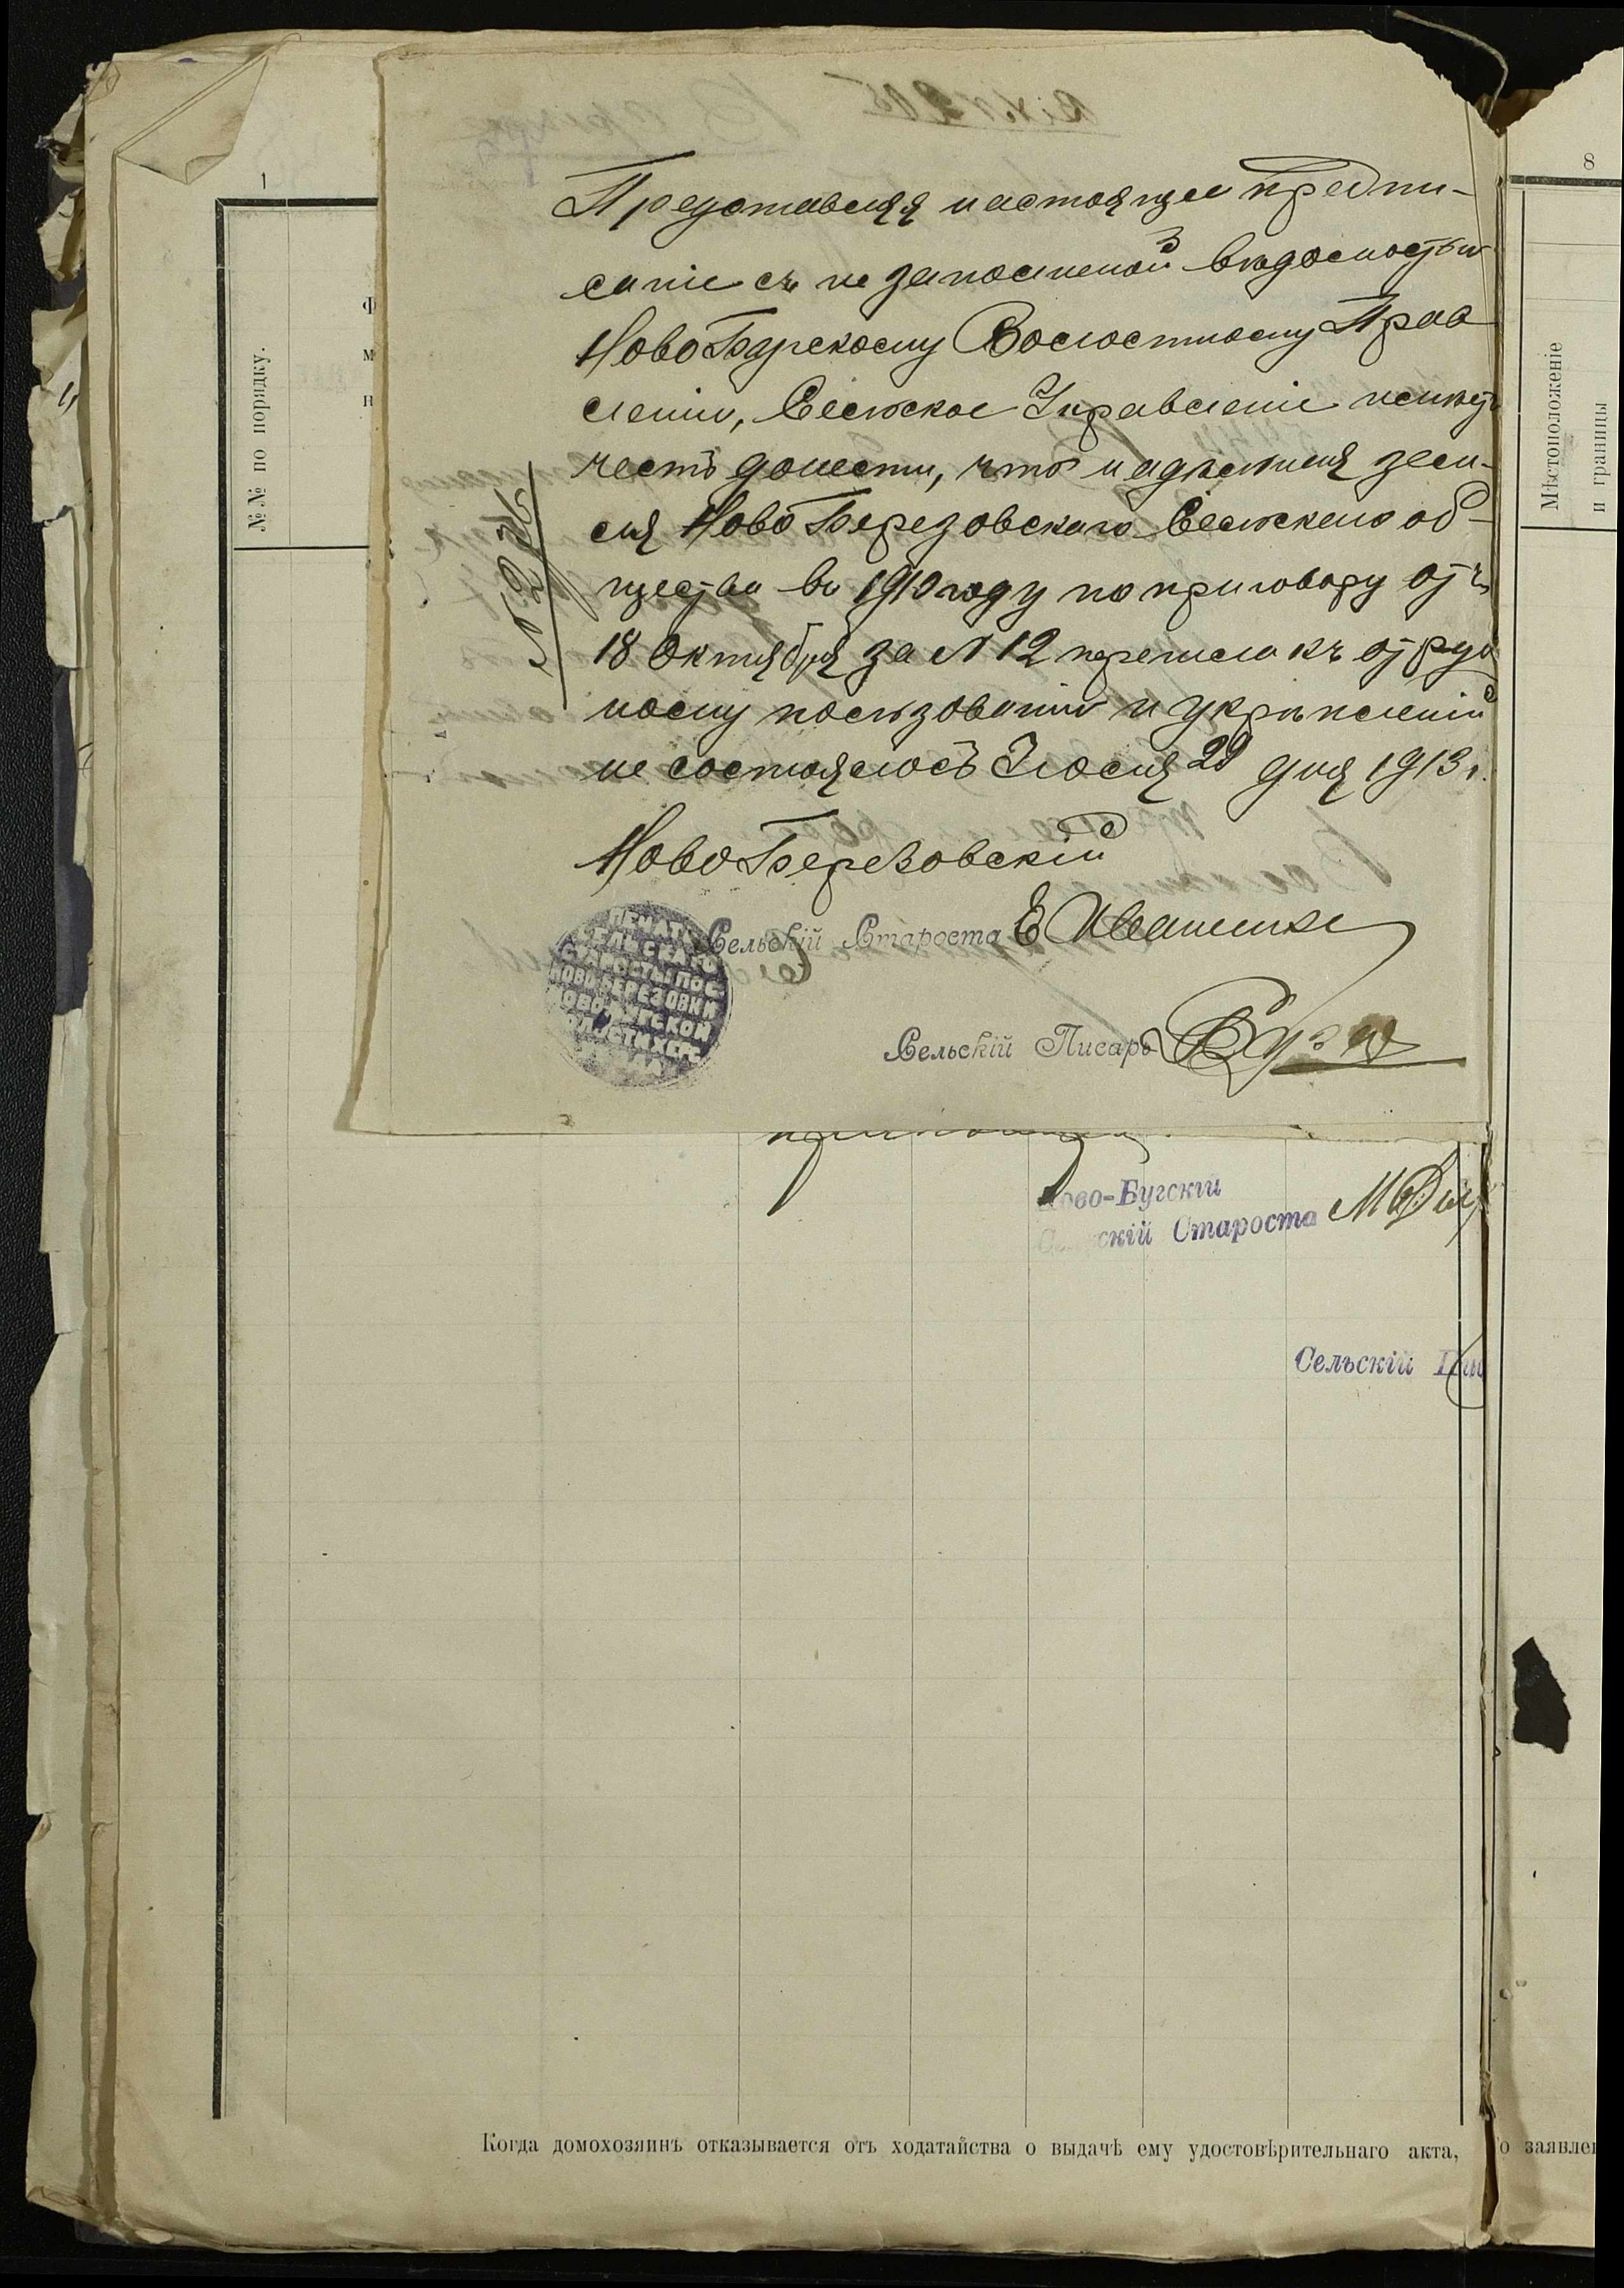 1
8
№№ по порядку.
Мѣстоположеніе
и границы
Представляя настоящее предпи-
саніе съ не заполненой вѣдомостью
Ново Бугскому Волостному Прав
ленію, Сельское Управленіе имѣетъ
честь донести, что надѣльная зем-
ля Ново Березовскаго Сельскаго об-
щества въ 1910 году по приговору отъ
18 Октября за № 12 перешла къ отруб
ному пользованію и укрѣпленій
не состоялось Іюля 29 дня 1913 г.
№ 236
Ново Березовскій
Сельскій Староста Е Ивашенко
Сельскій Писарь
ПЕЧАТЬ
СЕЛЬСКАГО
СТАРОСТЫ ПОС.
НОВО-БЕРЕЗОВКИ
НОВО-БУГСКОЙ
ВОЛОСТИ ХЕРС
Ново-Бугскій
Сельскій Староста
Сельскій Пи
Когда домохозяинъ отказывается отъ ходатайства о выдачѣ ему удостовѣрительнаго акта, то заявлен